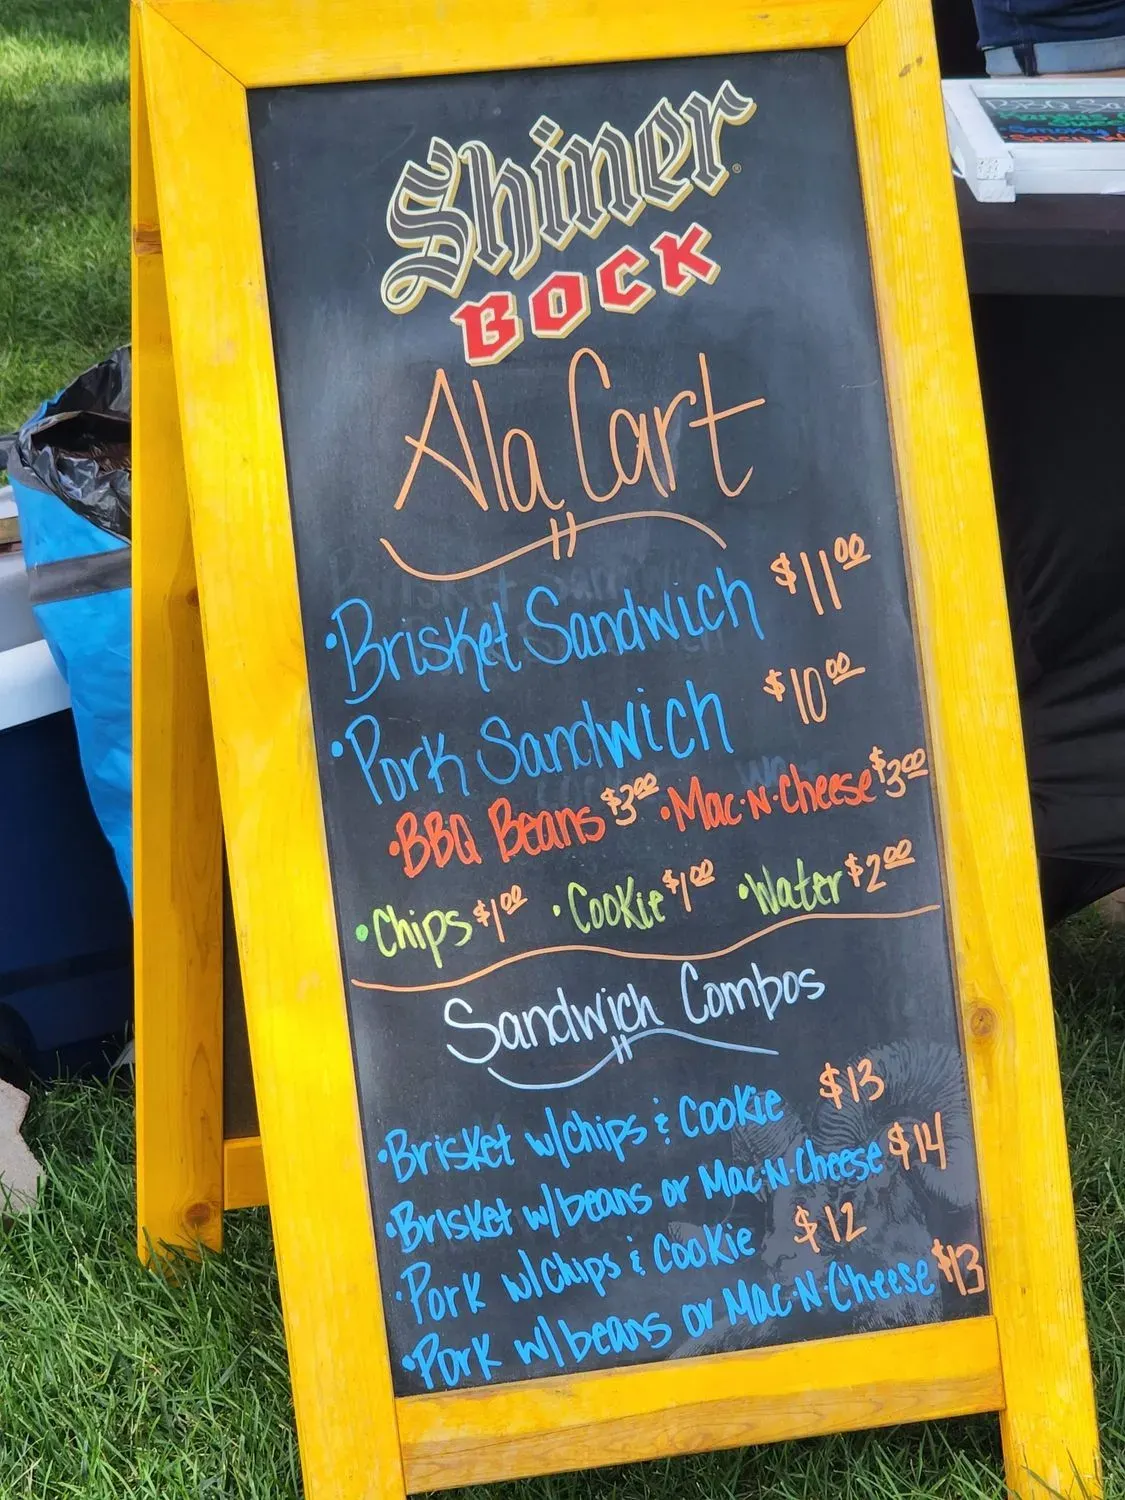 Shiner
BOCK
Ala Cart
• Brisket Sandwich $11.00
• Pork Sandwich $10.00
• BBQ Beans $3.00 • Mac-N-Cheese $3.00
• Chips $1.00 • Cookie $1.00 • Water $2.00
Sandwich Combos
• Brisket w/chips & Cookie $13
• Brisket w/beans or Mac-N-Cheese $14
• Pork w/chips & Cookie $12
• Pork w/beans or Mac-N-Cheese $13
BBQ